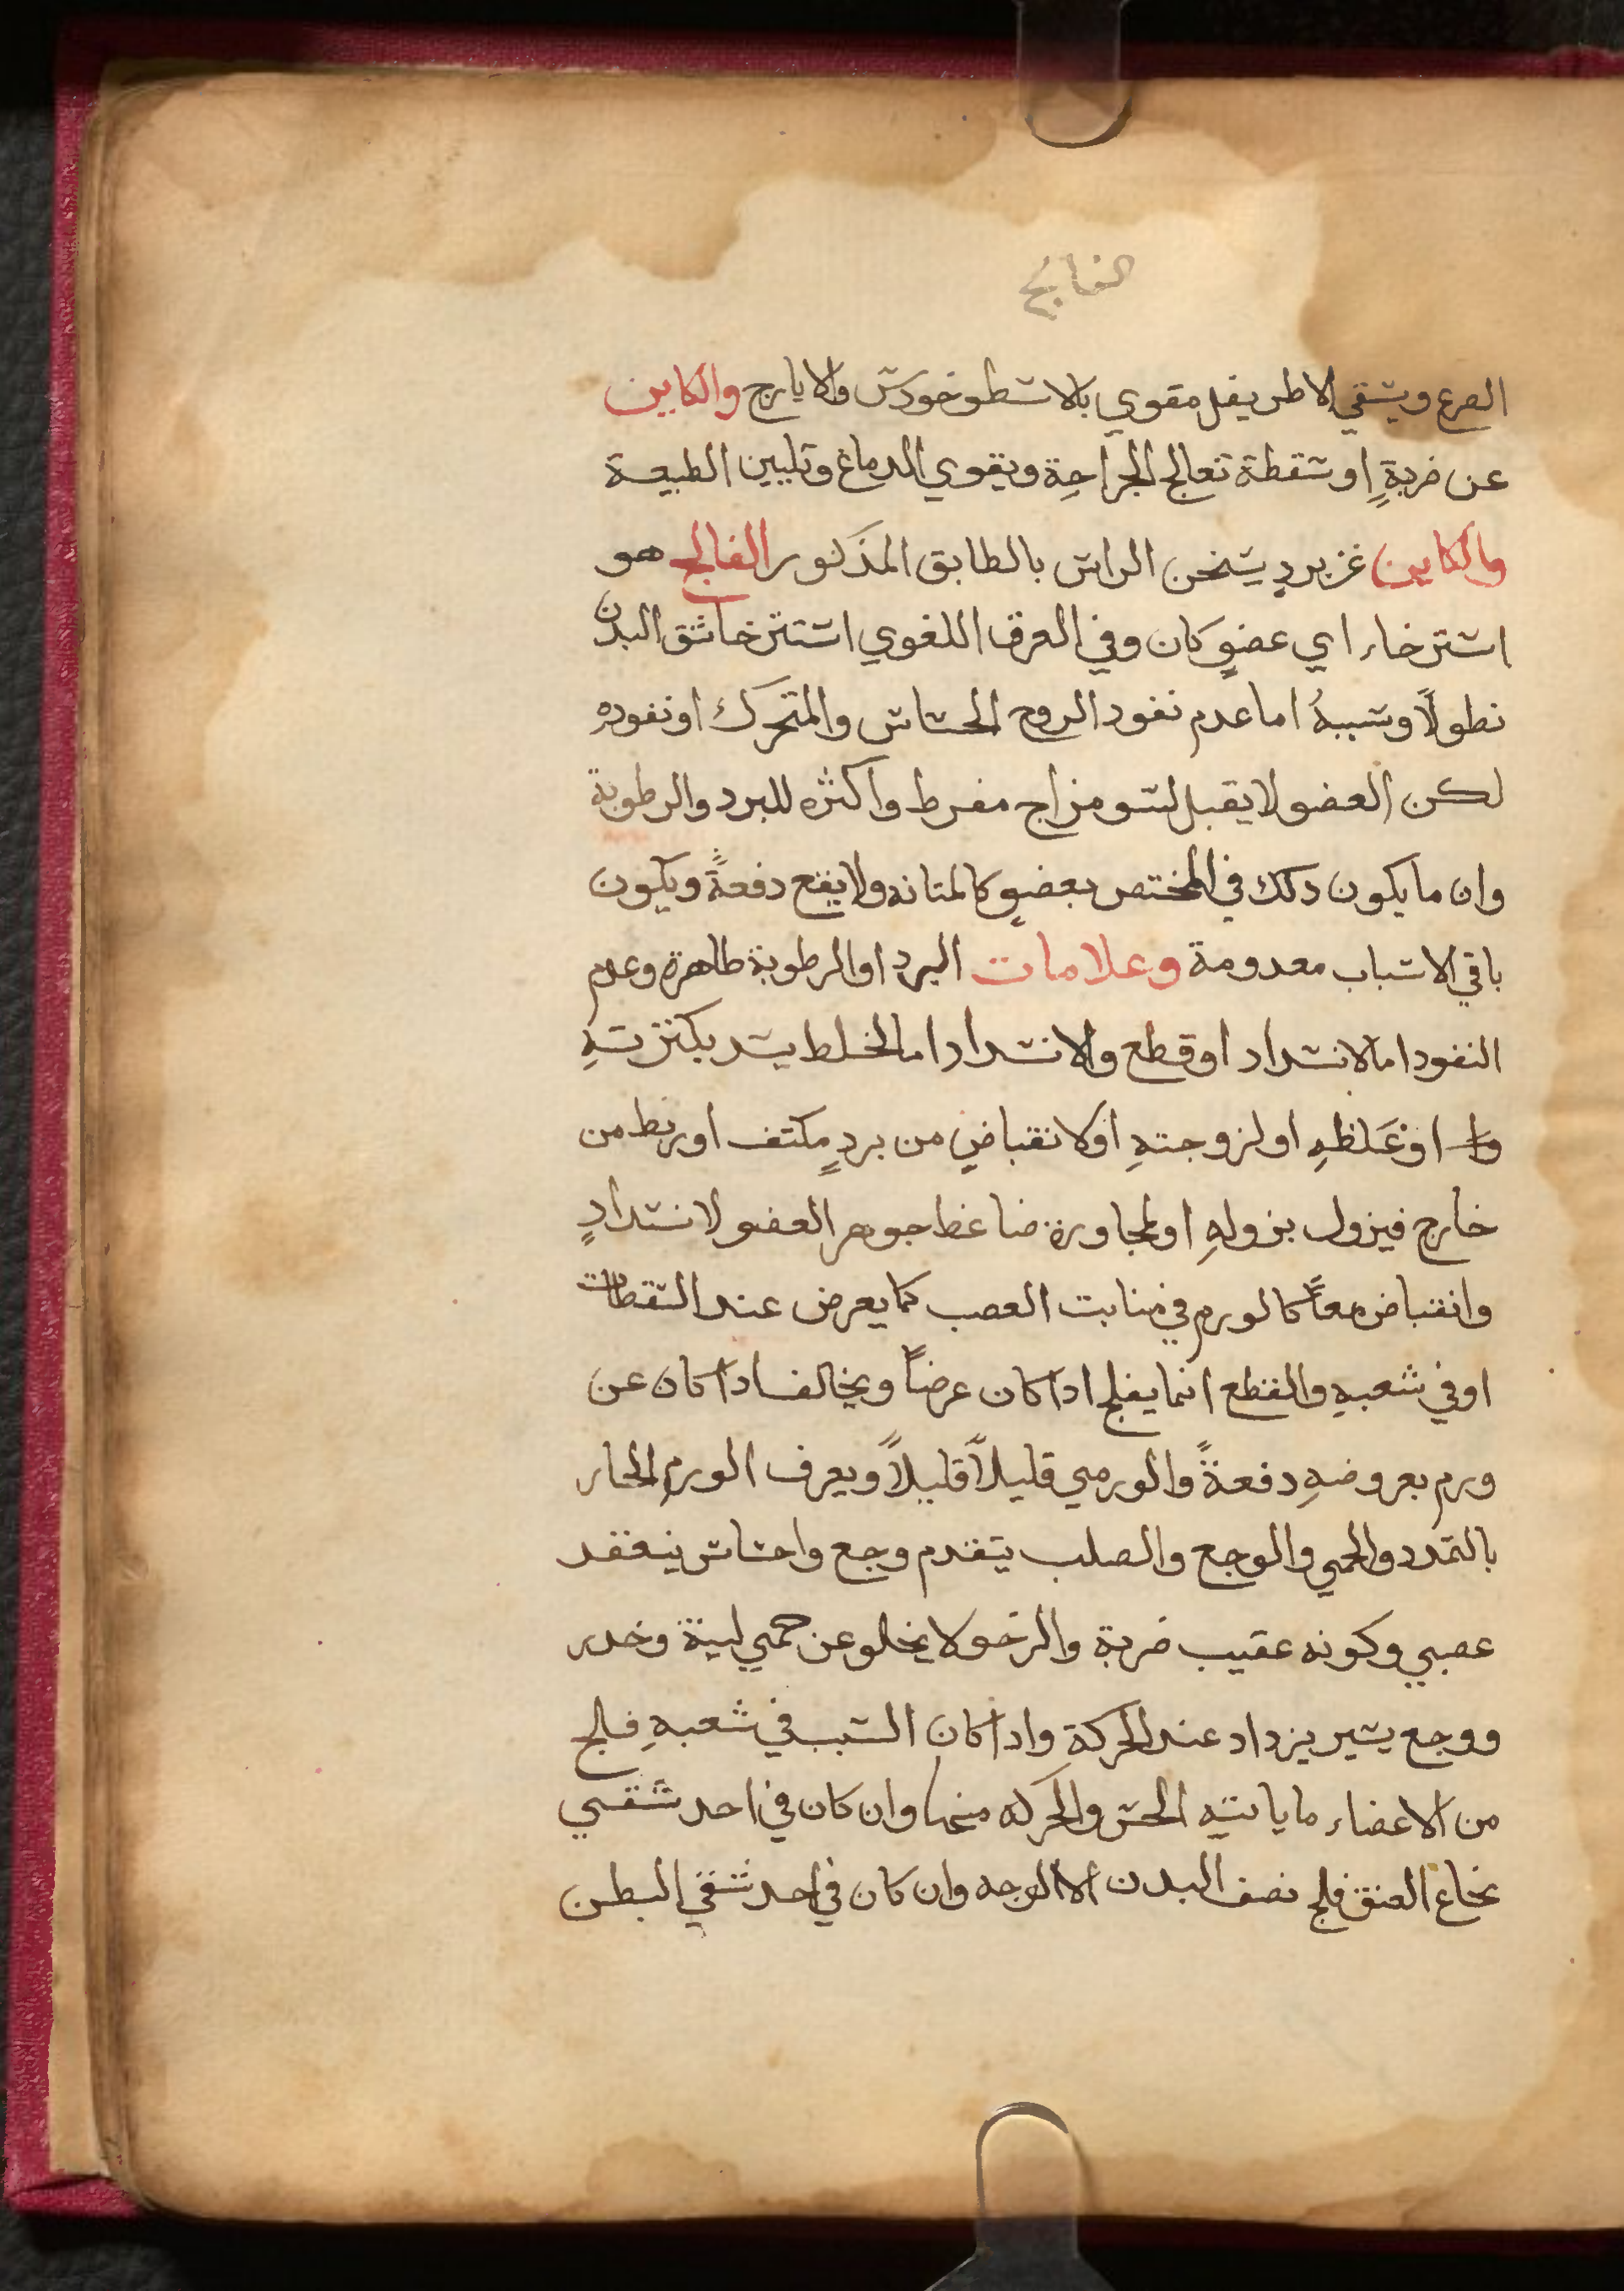 الفالج
الصرع ويسقي الاطريفل مقوي بالاسطوخودس والايارج والكاين
عن ضربةٍ او سقطة تعالج الجراحة ويقوي الدماغ وتليين الطبيعة
والكاين عن بردٍ يسخن الراس بالطابق المذكور الفالج هو
استرخاء اي عضوٍ كان وفي العرف اللغوي استرخا شق البدن
نطولاً وسببهُ اما عدم نفود الروح الحساس والمتحرك او نفوده
لكن العضو لا يقبل لسو مزاج مفرط واكثره للبرد والرطوبة
وان ما يكون دلك في المختص بعضوٍ كالمتانه ولا يقع دفعةً ويكون
باقي الاسباب معدومة وعلامات البرد او الرطوبة طاهرة وعدم
النفود اما لانسداد او قطع والانسداد اما لخلط يسد بكثرتهِ
او غَلظهِ او لزوجتهِ او لانقباضٍ من بردٍ مكتف او ربط من
خارج فيزول بزولهِ او لمجاورة ضاغط جوهر العضو لانسدادٍ
وانقباض معاً كالورم في منابت العصب كما يعرض عند السقطات
او في شعبهِ والقطع انما يفلج ادا كان عرضاً ويخالف ادا كان عن
ورم بعروضهِ دفعةً والورمي قليلاً قليلاً ويعرف الورم الحار
بالتمدد والحمي والوجع والصلب يتقدم وجع واحساس ينعقد
عصبي وكونه عقيب ضربة والرخو لا يخلو عن حمي لينة وخدر
ووجع يسير يزداد عند الحركة وادا كان السبب في شعبهِ فلج
من الاعضاء ما ياتيه الحس والحركه منها وان كان في احد شقي
نخاع العنق فلج نصف البدن الا الوجه وان كان في احد شقي البطن